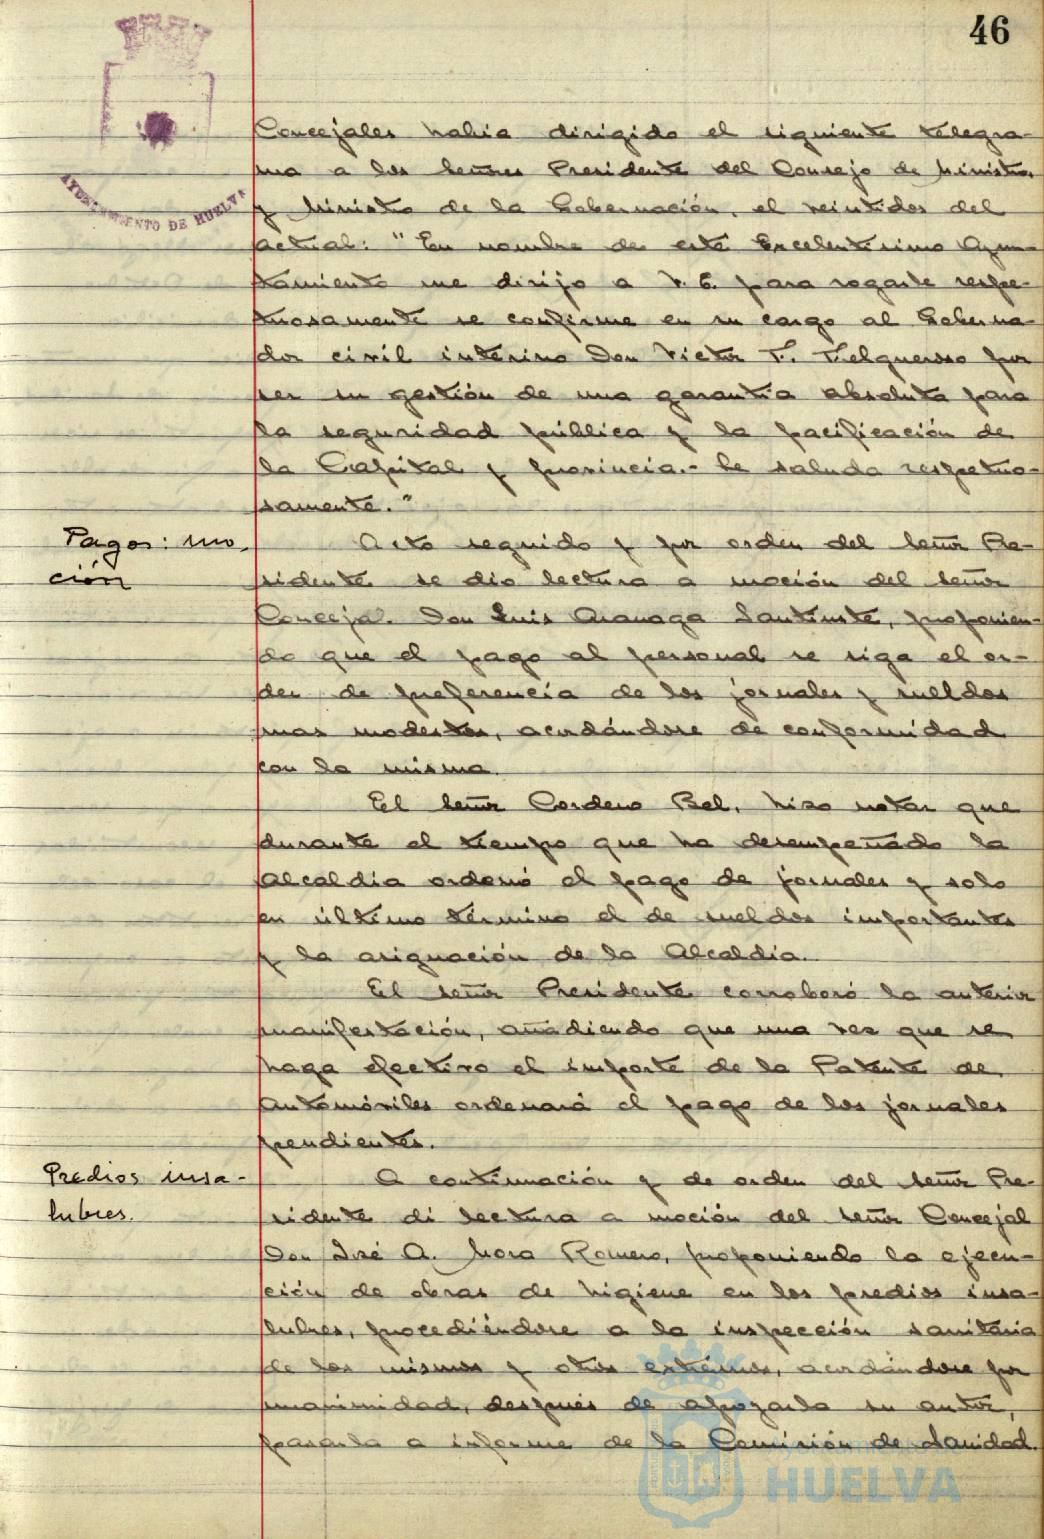 46
AYUNTAMIENTO DE HUELVA
Concejales había dirigido el siguiente telegra-
ma a los señores Presidente del Consejo de Ministros
y Ministro de la Gobernación, el veintidos del
actual: "En nombre de este Excelentísimo Ayun-
tamiento me dirijo a V. E. para rogarle respe-
tuosamente se confirme en su cargo al Goberna-
dor civil interino Don Victor F. Felgueroso por
ser su gestión de una garantía absoluta para
la seguridad pública y la pacificación de
la Capital y provincia.- Le saluda respetuo-
samente."
Pagos: mo-
ción
Acto seguido y por orden del señor Pre-
sidente se dio lectura a moción del señor
Concejal Don Luis Aranaga proponien-
do que el pago al personal se siga el or-
den de preferencia de los jornales y sueldos
mas modestos, acordándose de conformidad
con la misma.
El señor Cordero Bel, hizo notar que
durante el tiempo que ha desempeñado la
Alcaldía ordenó el pago de jornales y solo
en último término el de sueldos importantes
y la asignación de la Alcaldía.
El señor Presidente corroboró la anterior
manifestación, añadiendo que una vez que se
haga efectivo el importe de la Patente de
Automóviles ordenará el pago de los jornales
pendientes.
Predios insa-
lubres.
A continuación y de orden del señor Pre-
sidente di lectura a moción del señor Concejal
Don José A. Mora Romero, proponiendo la ejecu-
ción de obras de higiene en los predios insa-
lubres, procediéndose a la inspección sanitaria
de los mismos y otros extremos, acordándose por
unanimidad, después de apoyarla su autor,
pasarla a informe de la Comisión de Sanidad.
HUELVA